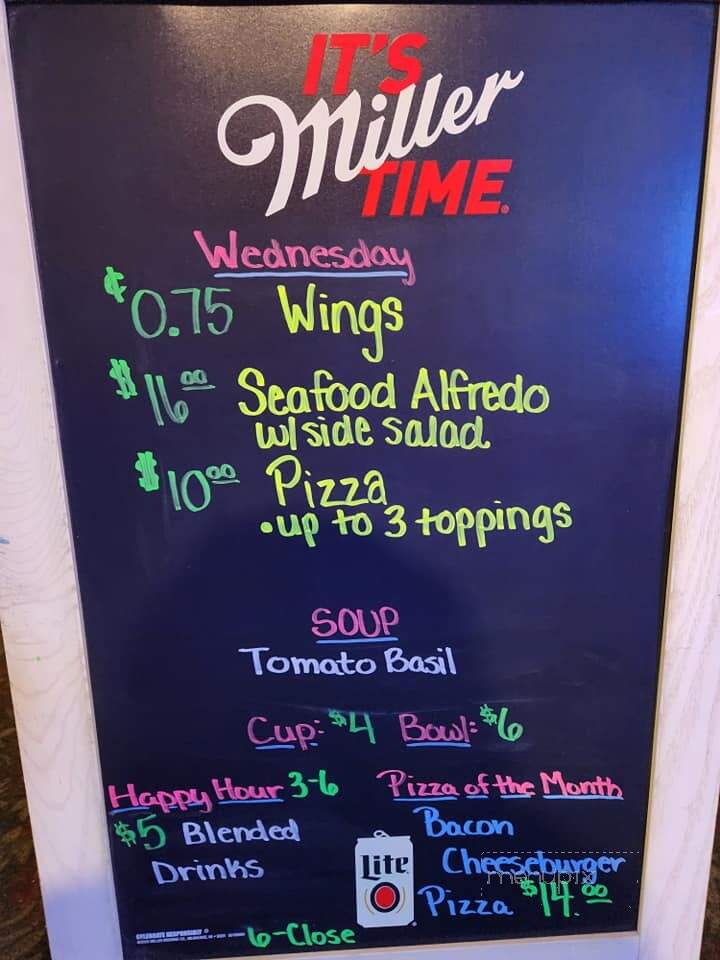 IT'S
Miller
TIME.
Wednesday
¢0.75 Wings
$16.00 Seafood Alfredo
w/ side salad
$10.00 Pizza
•up to 3 toppings
SOUP
Tomato Basil
Cup: $4 Bowl: $6
Happy Hour 3-6
$5 Blended
Drinks
6-Close
Pizza of the Month
Bacon
Cheeseburger
Pizza $14.00
Lite
menupix
CELEBRATE RESPONSIBLY